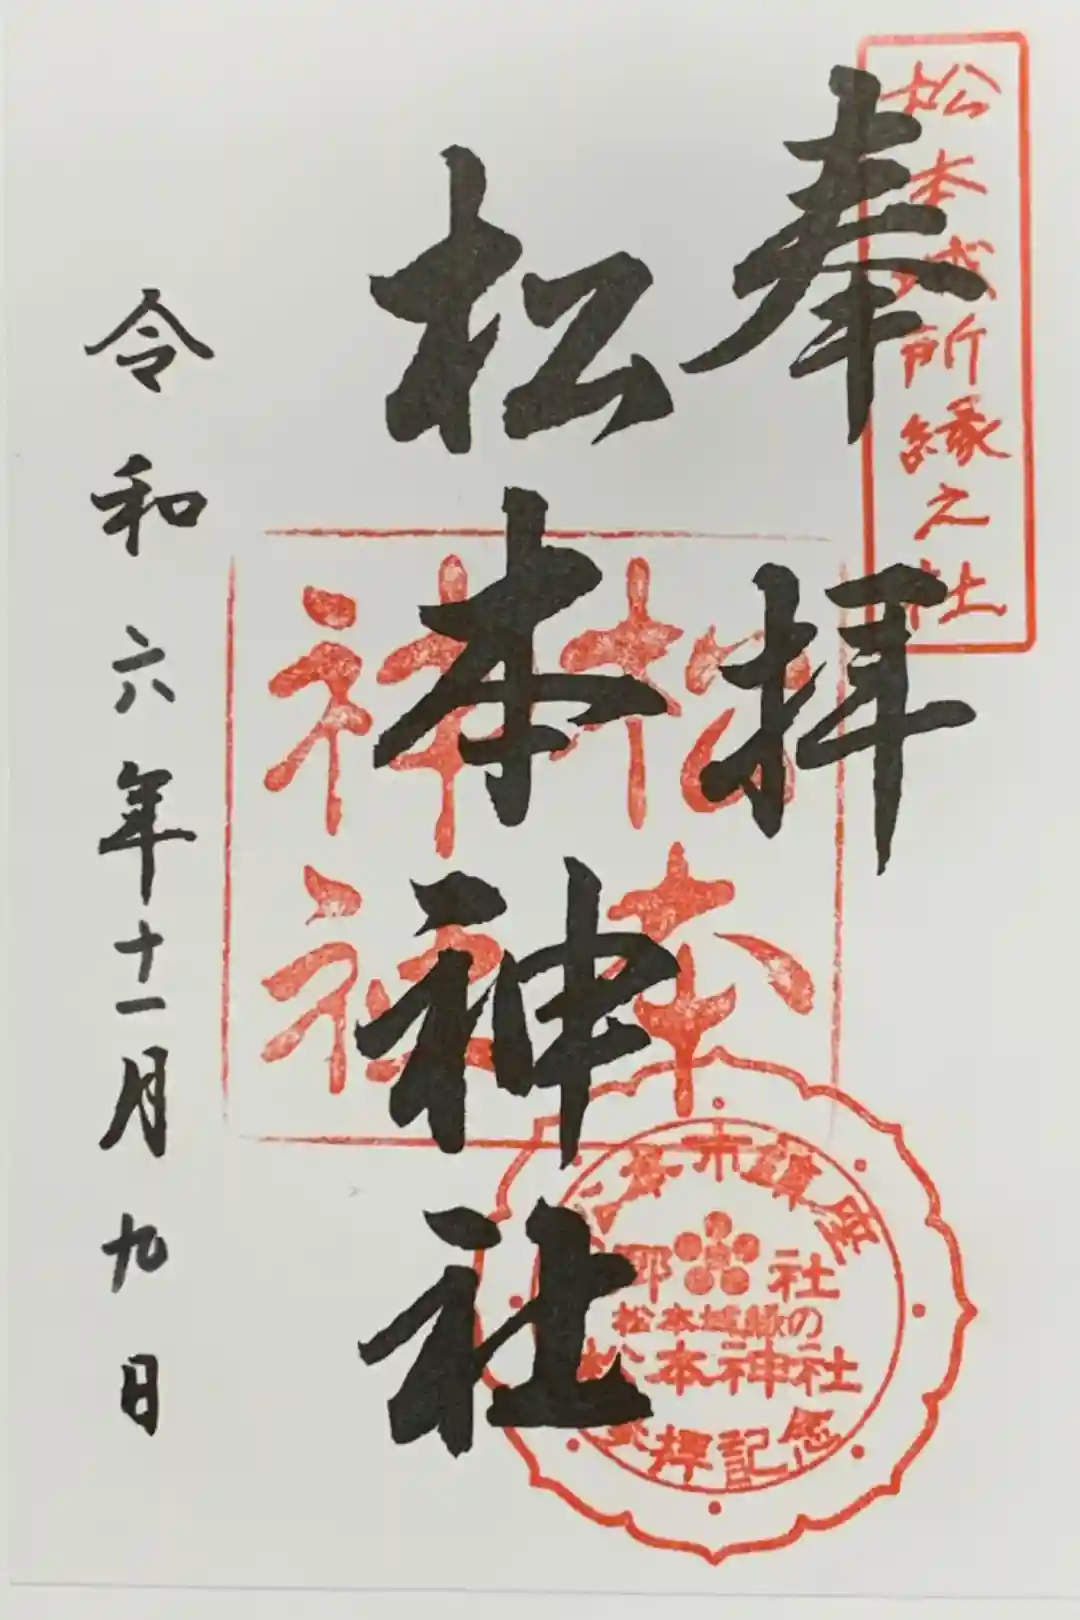 松本城所縁之社
奉拝
松本神社
令和六年十一月九日
松本
神社
松本市鎮座
郷社
松本城縁の
松本神社
参拝記念